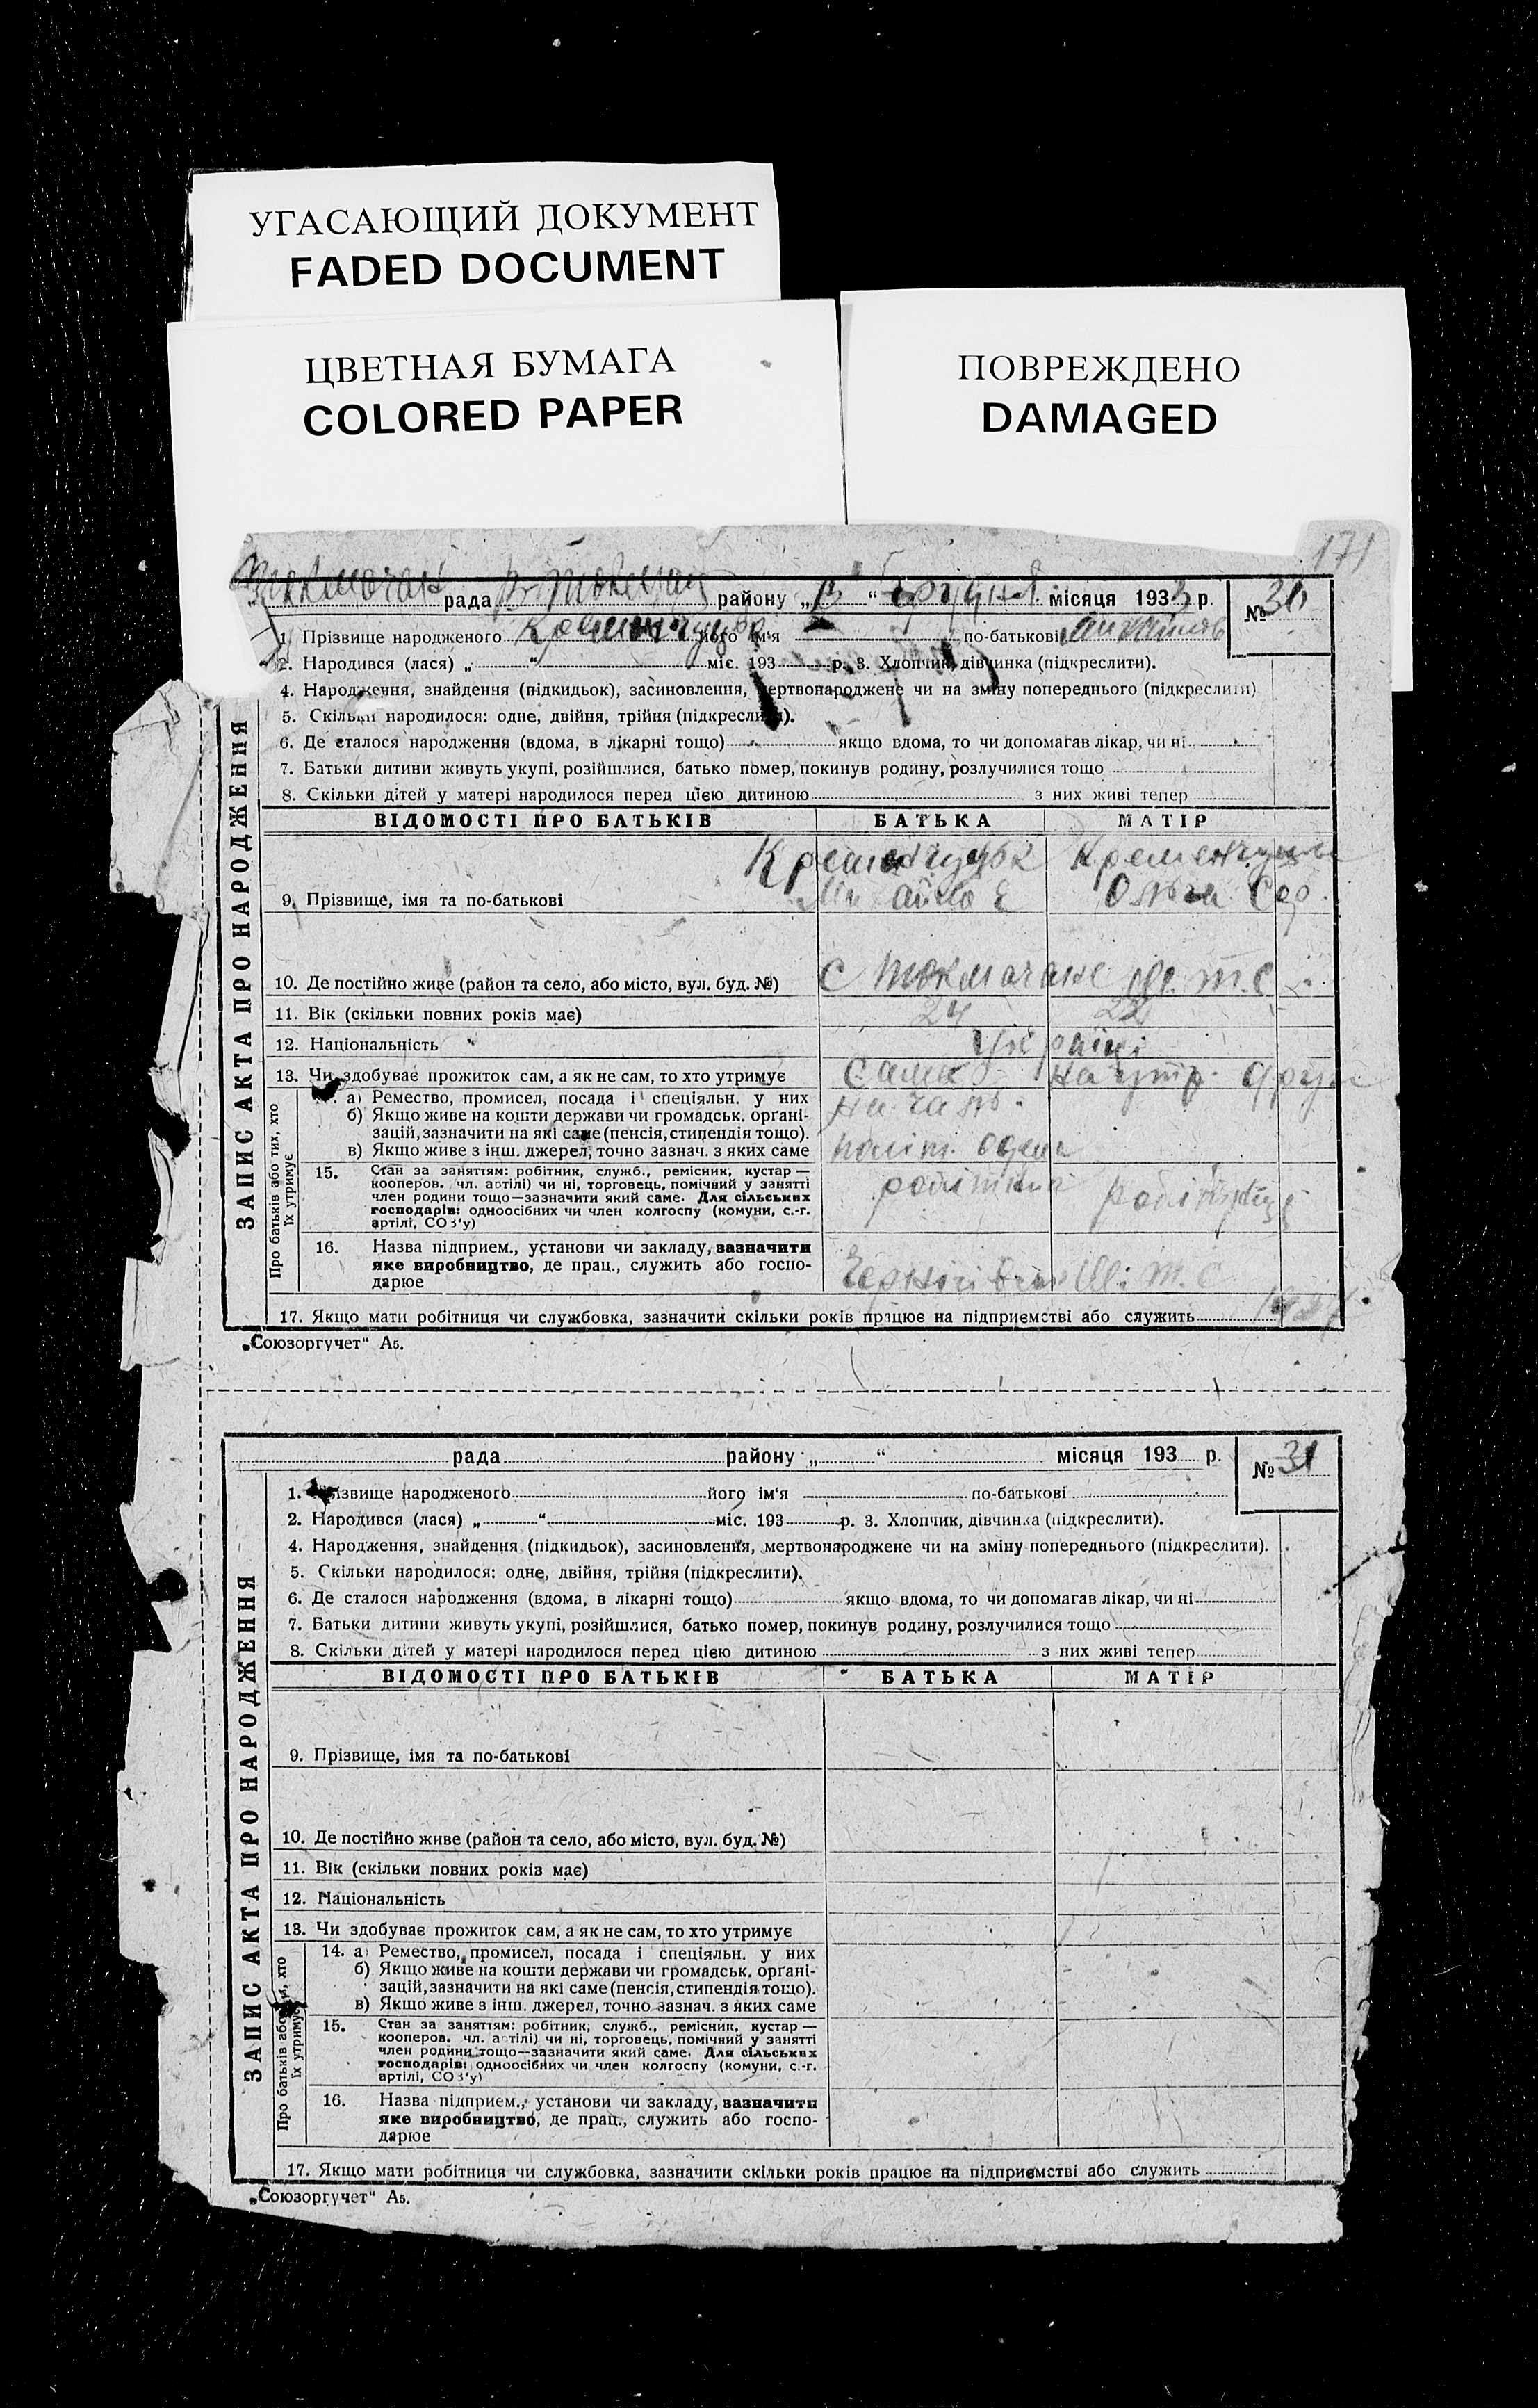 УГАСАЮЩИЙ ДОКУМЕНТ
FADED DOCUMENT
ЦВЕТНАЯ БУМАГА
COLORED PAPER
ПОВРЕЖДЕНО
DAMAGED
171
рада району „ “ місяця 1933 р.
№ 30
1. Прізвище народженого його ім'я по-батькові
2. Народився (лася) „ “ міс. 193 р. 3. Хлопчик, дівчинка (підкреслити).
4. Народження, знайдення (підкидьок), засиновлення, мертвонароджене чи на зміну попереднього (підкреслити)
5. Скільки народилося: одне, двійня, трійня (підкреслити).
6. Де сталося народження (вдома, в лікарні тощо) якщо вдома, то чи допомагав лікар, чи ні
7. Батьки дитини живуть укупі, розійшлися, батько помер, покинув родину, розлучилися тощо
8. Скільки дітей у матері народилося перед цією дитиною з них живі тепер
ЗАПИС АКТА ПРО НАРОДЖЕННЯ
ВІДОМОСТІ ПРО БАТЬКІВ БАТЬКА МАТІР
9. Прізвище, імя та по-батькові Ольга
10. Де постійно живе (район та село, або місто, вул. буд. №) с
11. Вік (скільки повних років має) 24 22
12. Національність
13. Чи здобуває прожиток сам, а як не сам, то хто утримує
Про батьків або тих, хто їх утримує
а) Ремество, промисел, посада і спеціяльн. у них
б) Якщо живе на кошти держави чи громадськ. орґані-
зацій, зазначити на які саме (пенсія, стипендія тощо).
в) Якщо живе з інш. джерел, точно зазнач. з яких саме
15. Стан за заняттям: робітник, служб., ремісник, кустар —
кооперов. чл. артілі) чи ні, торговець, помічний у занятті
член родини тощо—зазначити який саме. Для сільських
господарів: одноосібних чи член колгоспу (комуни, с.-г.
артілі, СОЗ'у)
16. Назва підприєм., установи чи закладу, зазначити
яке виробництво, де прац., служить або госпо-
дарює
17. Якщо мати робітниця чи службовка, зазначити скільки років працює на підприємстві або служить
„Союзоргучет“ А5.
рада району „ “ місяця 193 р.
№ 31
1. Прізвище народженого його ім'я по-батькові
2. Народився (лася) „ “ міс. 193 р. 3. Хлопчик, дівчинка (підкреслити).
4. Народження, знайдення (підкидьок), засиновлення, мертвонароджене чи на зміну попереднього (підкреслити).
5. Скільки народилося: одне, двійня, трійня (підкреслити).
6. Де сталося народження (вдома, в лікарні тощо) якщо вдома, то чи допомагав лікар, чи ні
7. Батьки дитини живуть укупі, розійшлися, батько помер, покинув родину, розлучилися тощо
8. Скільки дітей у матері народилося перед цією дитиною з них живі тепер
ЗАПИС АКТА ПРО НАРОДЖЕННЯ
ВІДОМОСТІ ПРО БАТЬКІВ БАТЬКА МАТІР
9. Прізвище, імя та по-батькові
10. Де постійно живе (район та село, або місто, вул. буд. №)
11. Вік (скільки повних років має)
12. Національність
13. Чи здобуває прожиток сам, а як не сам, то хто утримує
Про батьків або тих, хто їх утримує
14. а) Ремество, промисел, посада і спеціяльн. у них
б) Якщо живе на кошти держави чи громадськ. орґані-
зацій, зазначити на які саме (пенсія, стипендія тощо).
в) Якщо живе з інш. джерел, точно зазнач. з яких саме
15. Стан за заняттям: робітник, служб., ремісник, кустар —
кооперов. чл. артілі) чи ні, торговець, помічний у занятті
член родини тощо—зазначити який саме. Для сільських
господарів: одноосібних чи член колгоспу (комуни, с.-г.
артілі, СОЗ'у)
16. Назва підприєм., установи чи закладу, зазначити
яке виробництво, де прац., служить або госпо-
дарює
17. Якщо мати робітниця чи службовка, зазначити скільки років працює на підприємстві або служить
„Союзоргучет“ А5.